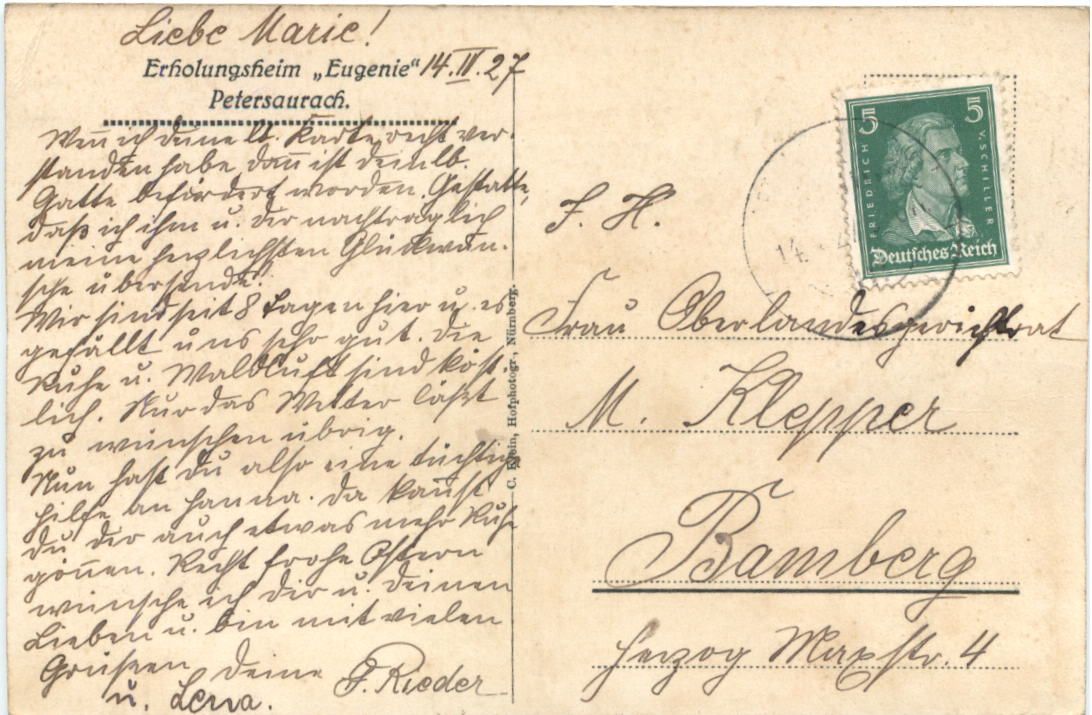 Liebe Marie!
Erholungsheim „Eugenie“ 14. IV. 27
Petersaurach.
Wenn ich deine lb. Karte recht ver-
standen habe, dann ist dein lb.
Gatte befördert worden. Gestatte,
daß ich ihm u. dir nachträglich
meine herzlichsten Glückwün-
sche übersende.
Wir sind seit 8 Tagen hier u. es
gefällt uns sehr gut. Die
Ruhe u. Waldluft sind köst-
lich. Nur das Wetter läßt
zu wünschen übrig.
Nun hast du also eine tüchtige
Hilfe an Hanna. Da kannst
du dir auch etwas mehr Ruhe
gönnen. Recht frohe Ostern
wünsche ich dir u. deinen
Lieben u. bin mit vielen
Grüßen deine F. Rieder
u. Lena.
C. Klein, Hofphotogr., Nürnberg.
5 5
FRIEDRICH V. SCHILLER
Deutsches Reich
14
F. H.
Frau Oberlandesgerichtsrat
M. Klepper
Bamberg
Herzog Maxstr. 4